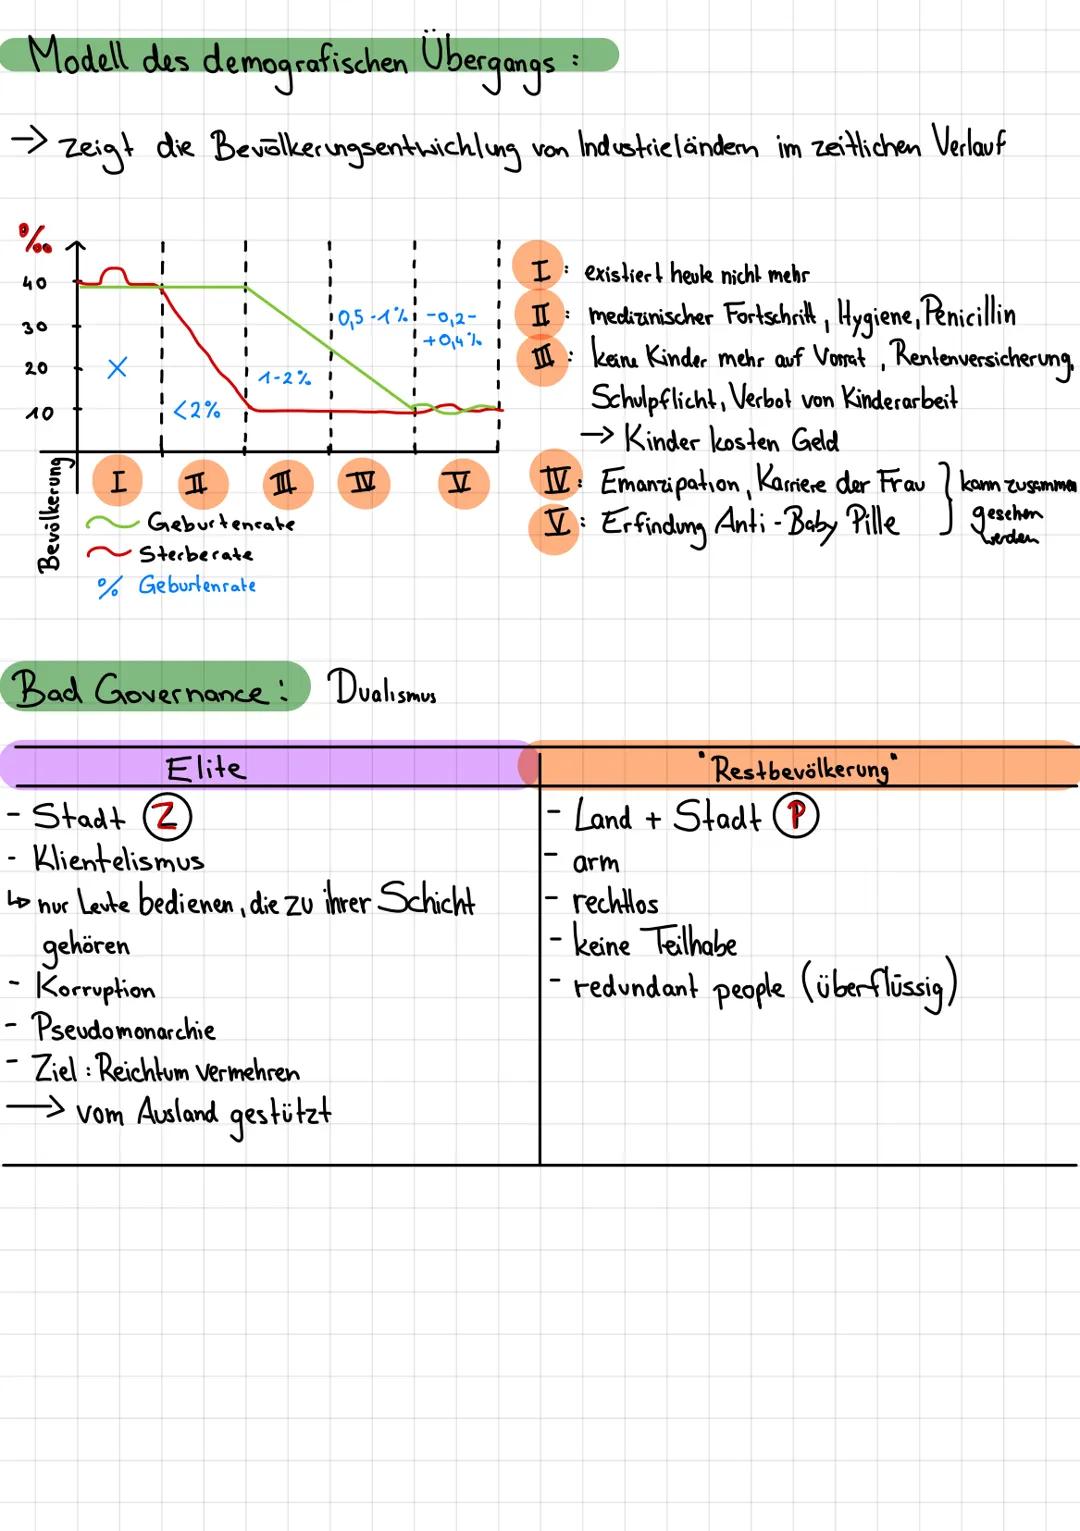 Modell des demografischen Übergangs :
→ zeigt die Bevölkerungsentwichlung von Industrieländern im zeitlichen Verlauf
‰
40
30
20
10
X
<2%
1-2%
0,5-1%
-0,2-
+0,4%
I
II
III
IV
V
Bevölkerung
Geburtenrate
Sterberate
% Geburtenrate
I : existiert heute nicht mehr
II : medizinischer Fortschritt, Hygiene, Penicillin
III : keine Kinder mehr auf Vorrat, Rentenversicherung,
Schulpflicht, Verbot von Kinderarbeit
→ Kinder kosten Geld
IV : Emanzipation, Karriere der Frau
V : Erfindung Anti-Baby Pille
kann zusammen
gesehen
werden
Bad Governance : Dualismus
Elite
- Stadt Z
- Klientelismus
↳ nur Leute bedienen, die zu ihrer Schicht
gehören
- Korruption
- Pseudomonarchie
- Ziel : Reichtum vermehren
→ vom Ausland gestützt
"Restbevölkerung"
- Land + Stadt P
- arm
- rechtlos
- keine Teilhabe
- redundant people (überflüssig)